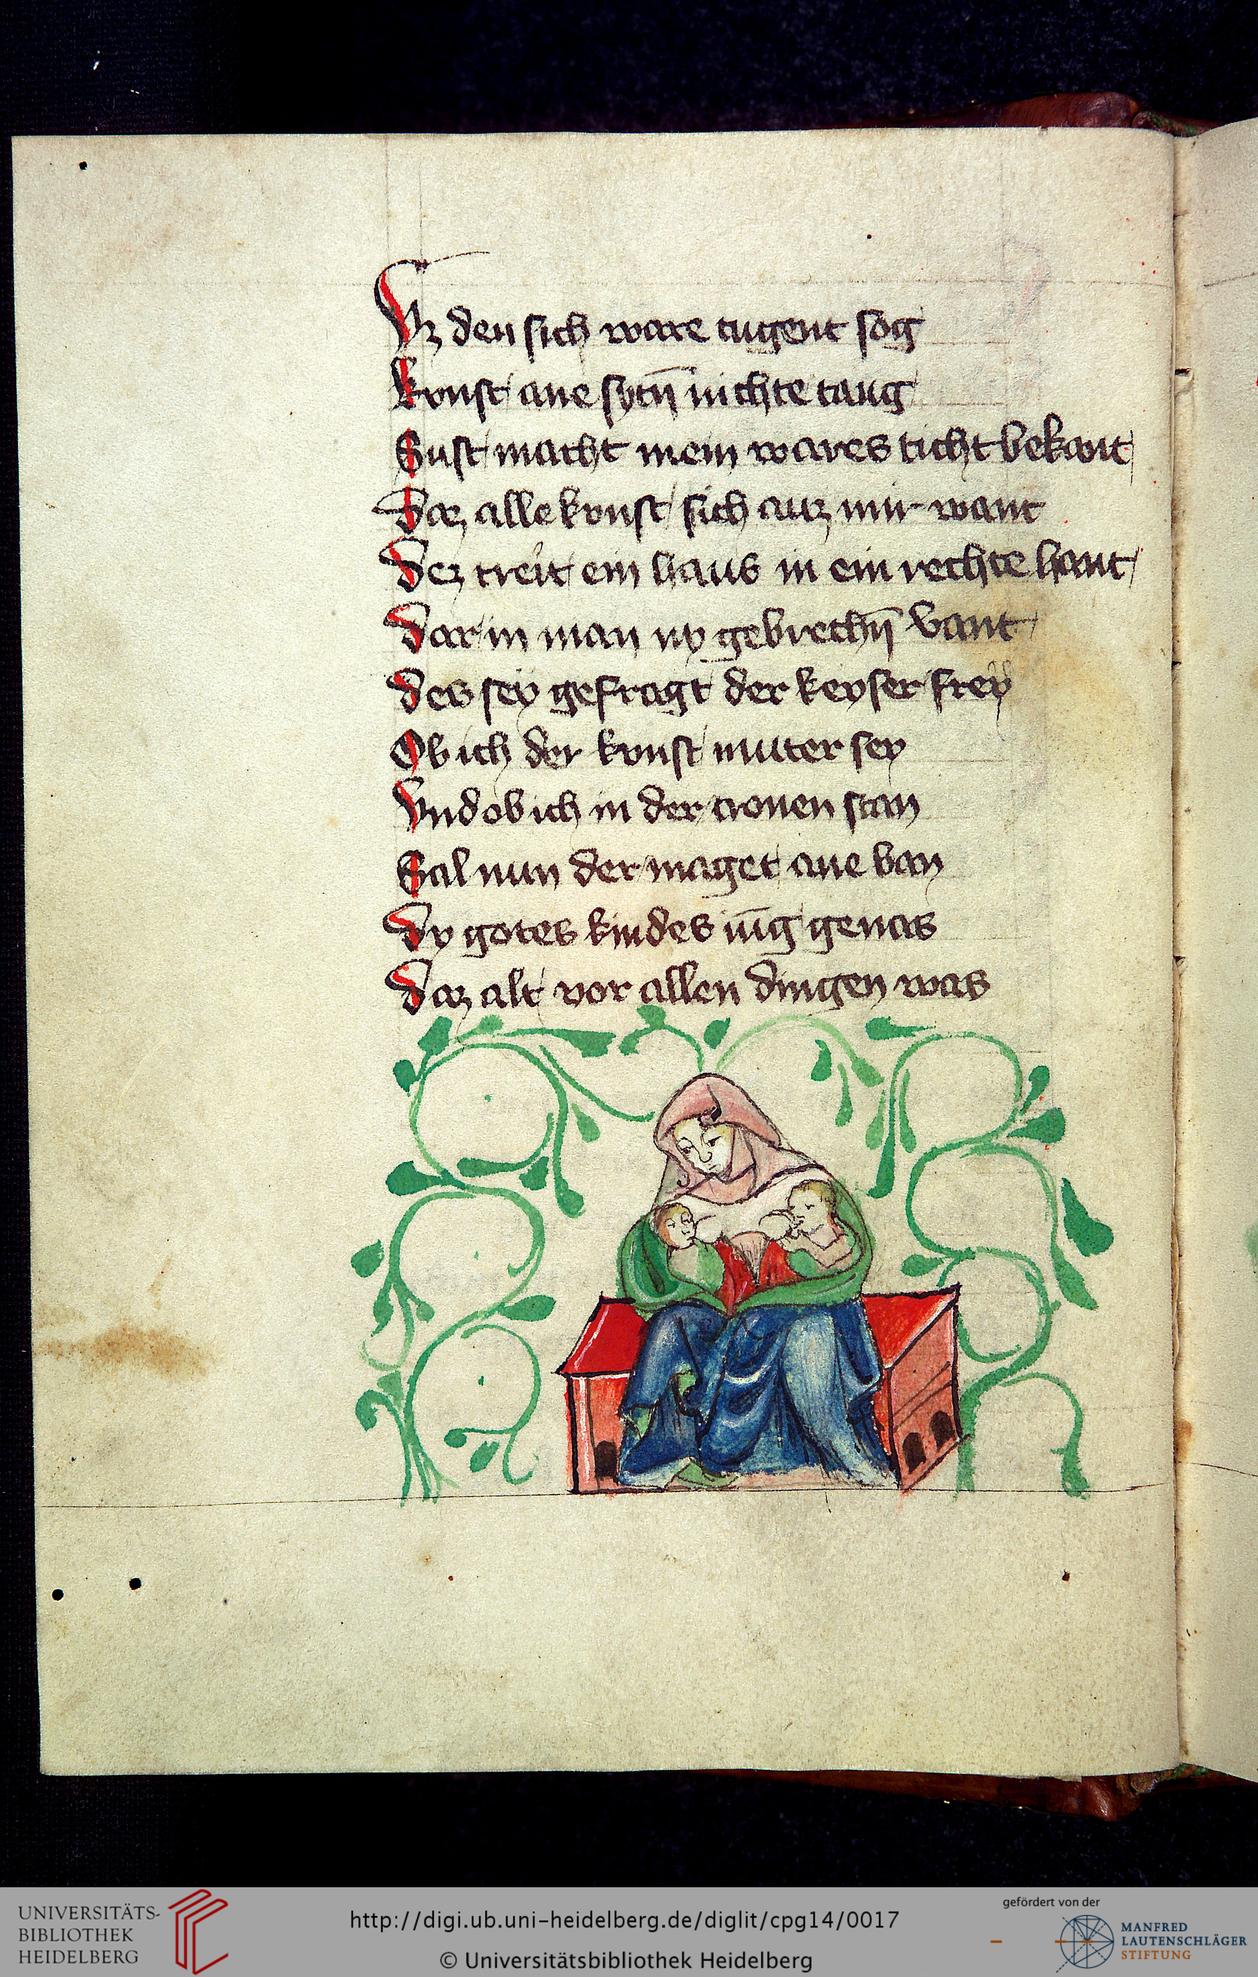 Vz den sich ware tugent sog
kvnst ane sytñ nichte taug
Sust macht mein wares ticht bekant
Daz alle kvnst sich auz mir want
Dez treit ein haus in ein rechte hant
Dar in man ny gebrechñ vant
Des sey gefragt der keyser frey
Ob ich der kvnst muter sey
Vnd ob ich in der cronen stan
Sal nun der maget ane van
Dy gotes kindes iūg genas
Daz alt vor allen dingen was
UNIVERSITÄTS-
BIBLIOTHEK
HEIDELBERG
http://digi.ub.uni-heidelberg.de/diglit/cpg14/0017
© Universitätsbibliothek Heidelberg
gefördert von der
MANFRED
LAUTENSCHLÄGER
STIFTUNG